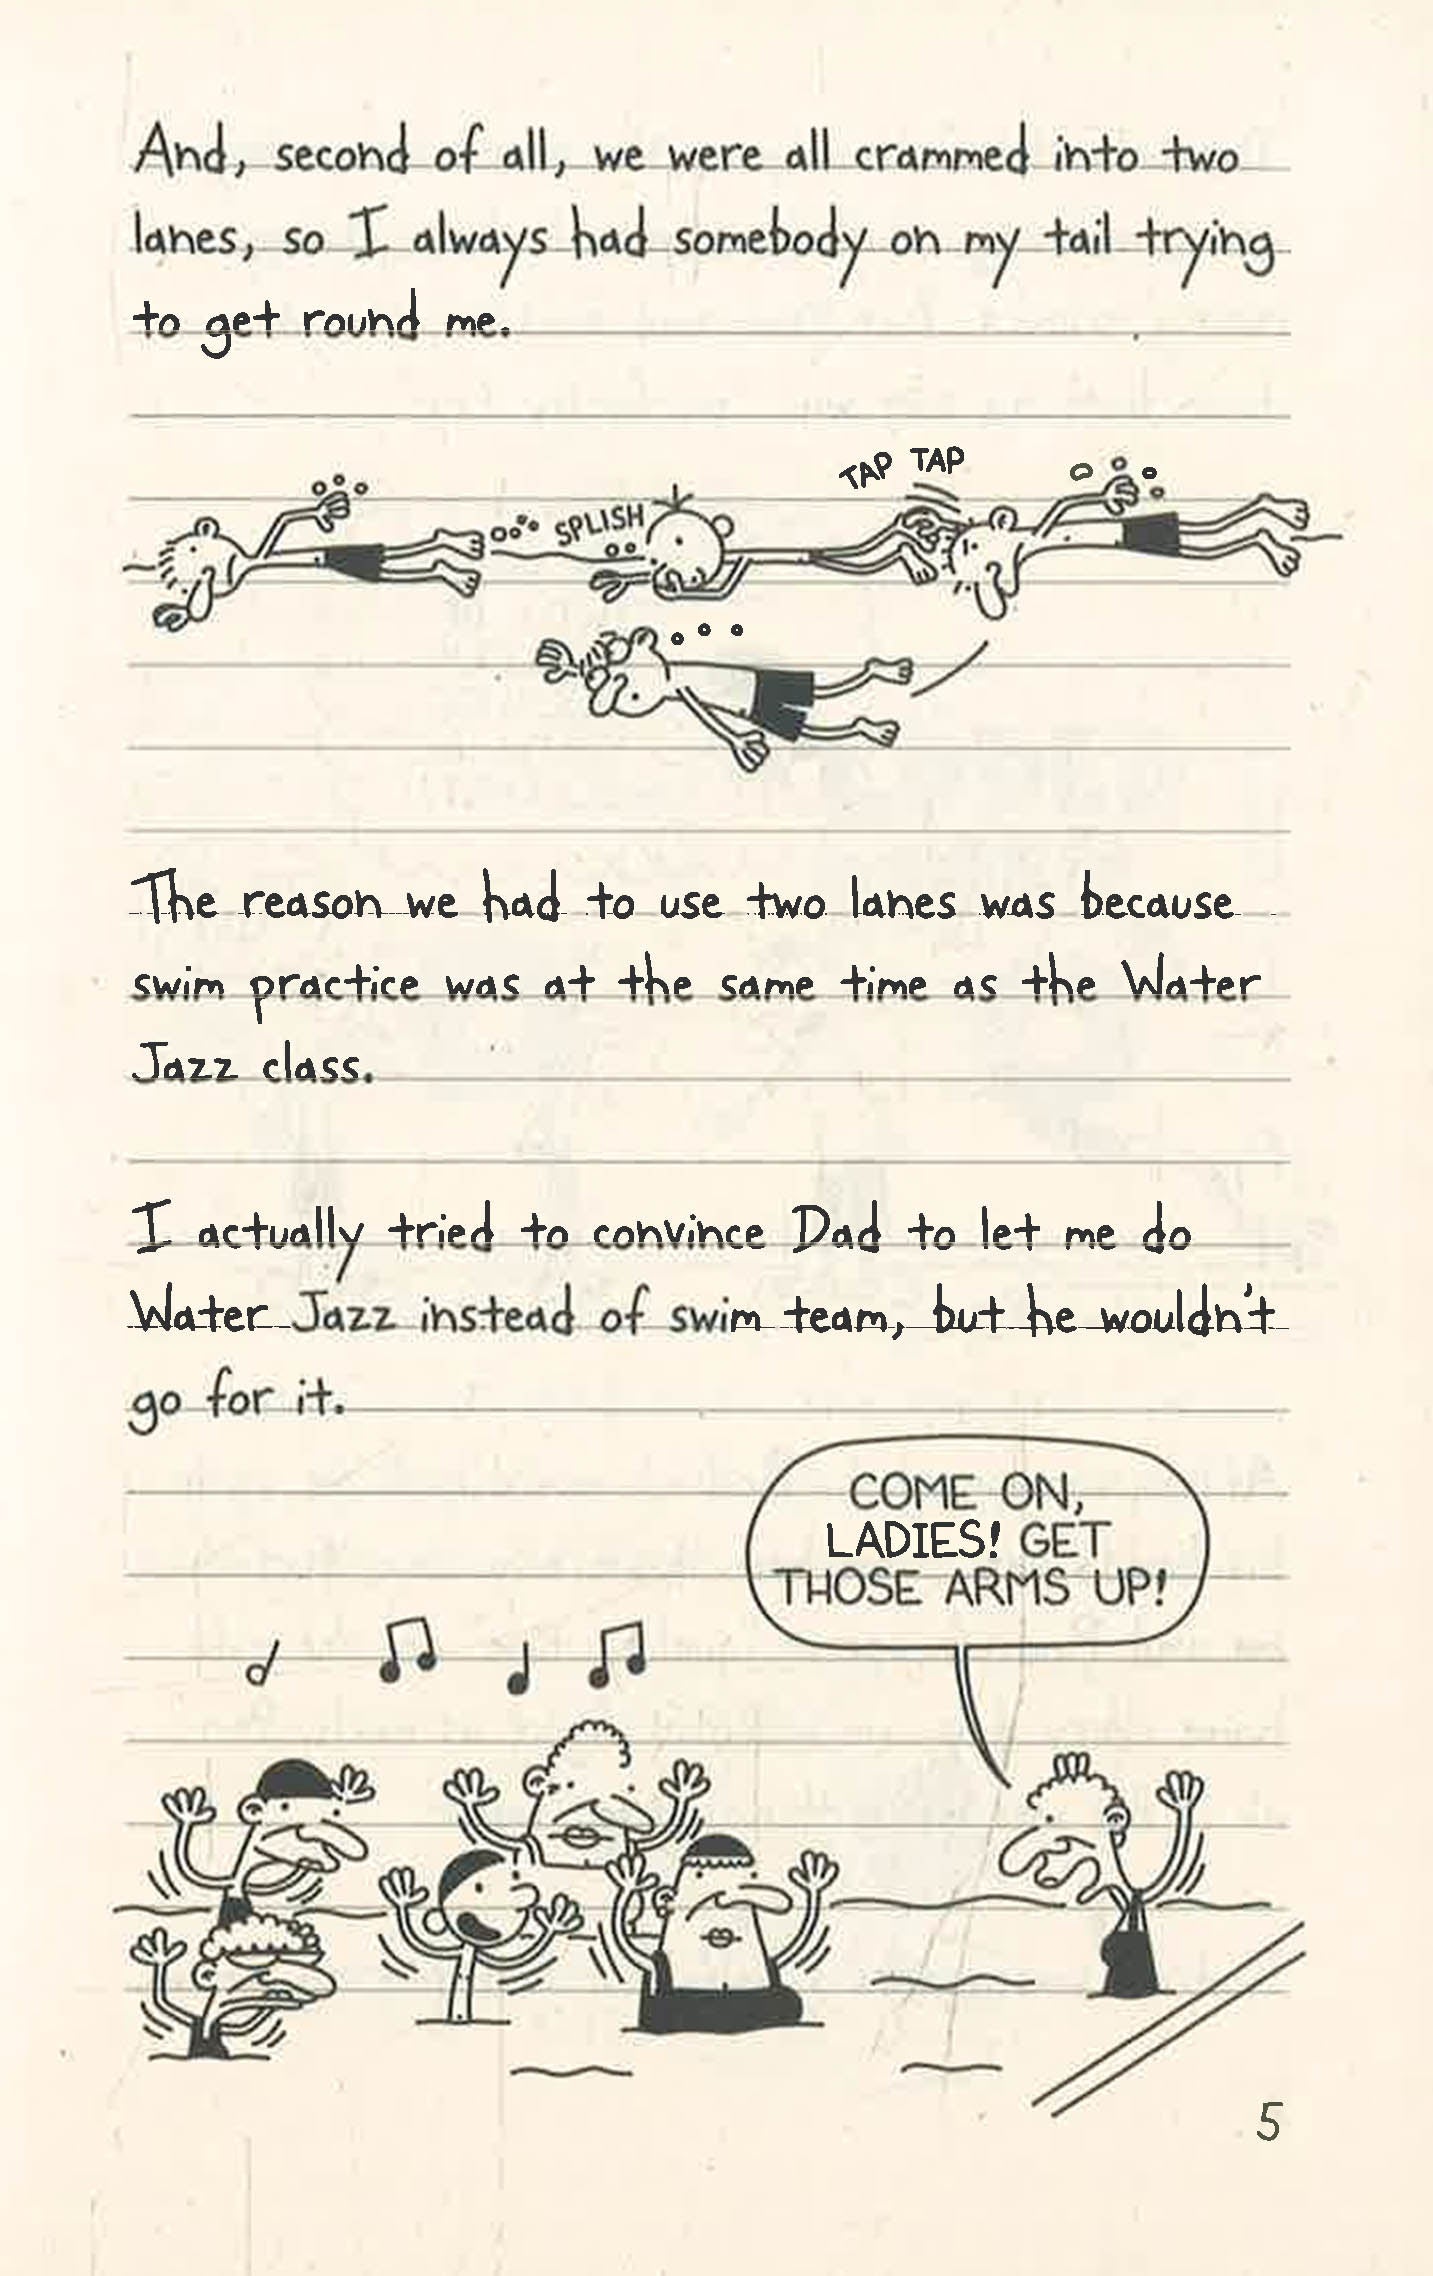 And, second of all, we were all crammed into two
lanes, so I always had somebody on my tail trying
to get round me.
TAP TAP
SPLISH
The reason we had to use two lanes was because
swim practice was at the same time as the Water
Jazz class.
I actually tried to convince Dad to let me do
Water Jazz instead of swim team, but he wouldn't
go for it.
COME ON,
LADIES! GET
THOSE ARMS UP!
5